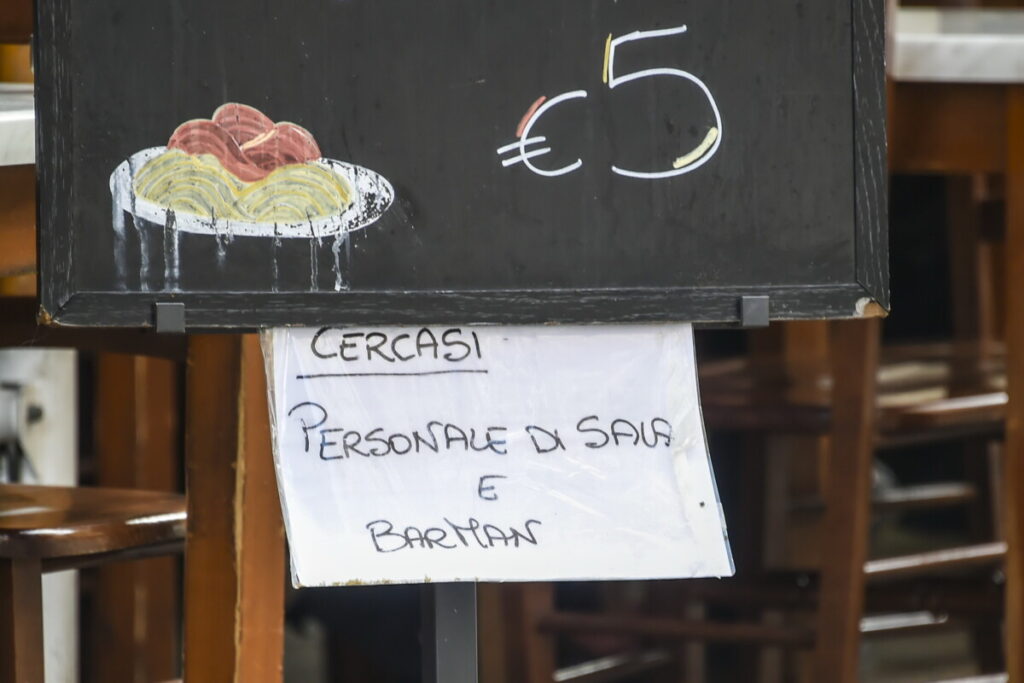 €5
CERCASI
PERSONALE DI SALA
E
BARMAN